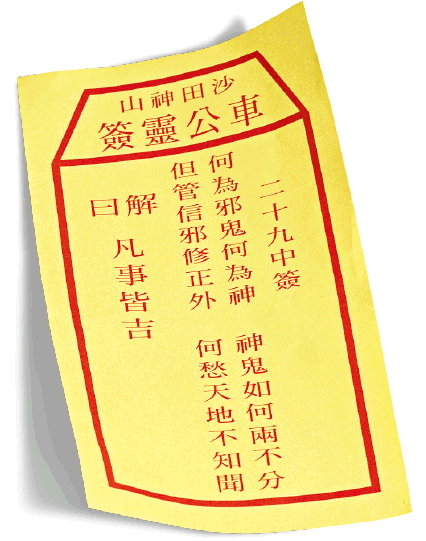 沙田神山
車公靈簽
二十九中簽
何為邪鬼何為神
神鬼如何兩不分
但管信邪修正外
何愁天地不知聞
解曰
凡事皆吉